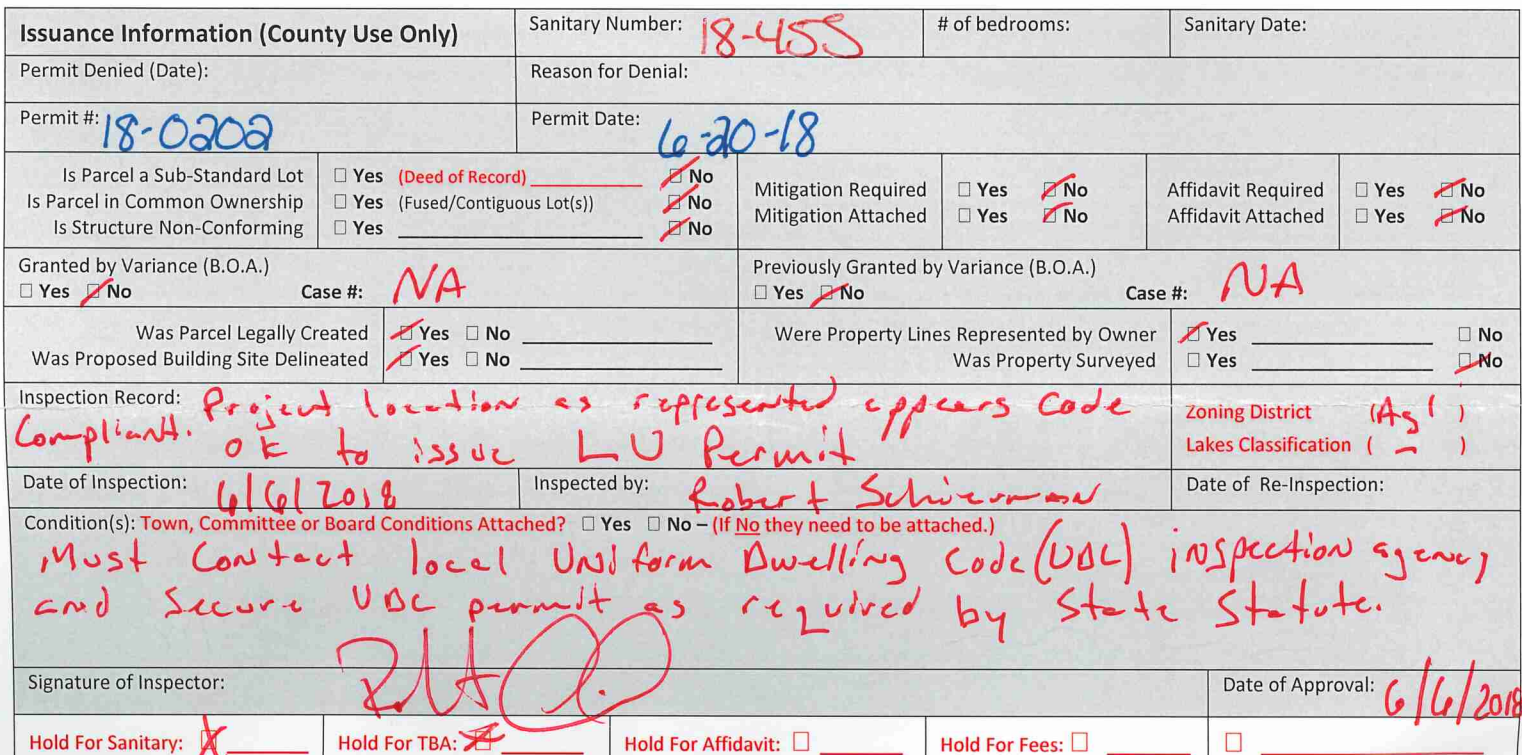 Issuance Information (County Use Only) Sanitary Number: 18-45S # of bedrooms: Sanitary Date:
Permit Denied (Date): Reason for Denial:
Permit #: 18-0202 Permit Date: 6-20-18
Is Parcel a Sub-Standard Lot □ Yes (Deed of Record) □ No
Is Parcel in Common Ownership □ Yes (Fused/Contiguous Lot(s)) □ No
Is Structure Non-Conforming □ Yes □ No
Mitigation Required □ Yes □ No
Mitigation Attached □ Yes □ No
Affidavit Required □ Yes □ No
Affidavit Attached □ Yes □ No
Granted by Variance (B.O.A.)
□ Yes □ No Case #: NA
Previously Granted by Variance (B.O.A.)
□ Yes □ No Case #: NA
Was Parcel Legally Created □ Yes □ No
Was Proposed Building Site Delineated □ Yes □ No
Were Property Lines Represented by Owner □ Yes □ No
Was Property Surveyed □ Yes □ No
Inspection Record: Project location as represented appears Code
Compliant. OK to issue LU Permit
Zoning District (Ag1)
Lakes Classification ( - )
Date of Inspection: 6/6/2018 Inspected by: Robert Schierman Date of Re-Inspection:
Condition(s): Town, Committee or Board Conditions Attached? □ Yes □ No – (If No they need to be attached.)
Must Contact local Uniform Dwelling Code (UDC) inspection agency
and Secure UDC permit as required by State Statute.
Signature of Inspector: Date of Approval: 6/6/2018
Hold For Sanitary: □ Hold For TBA: □ Hold For Affidavit: □ Hold For Fees: □ □